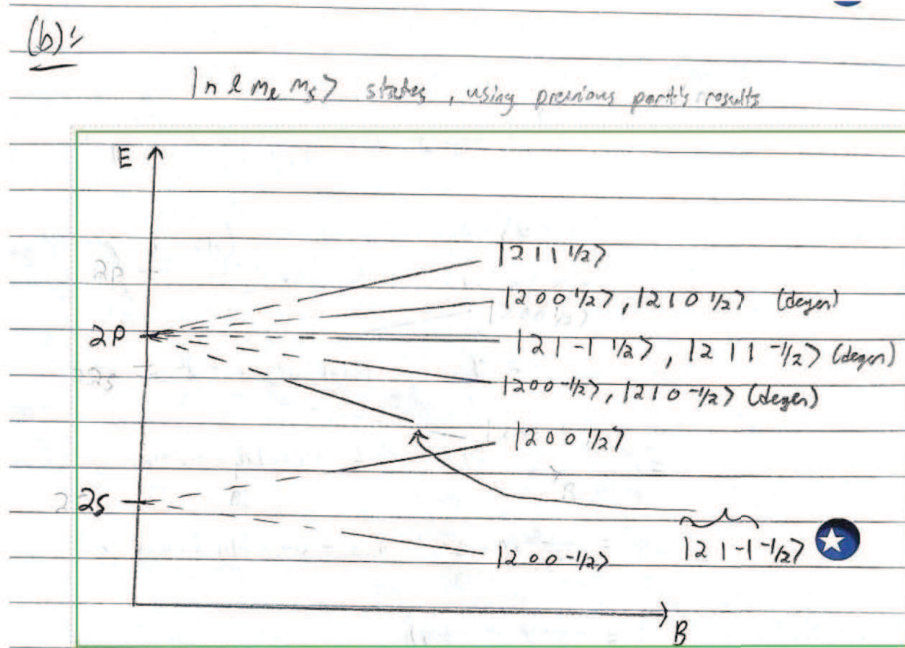 (b):
|n ℓ mₗ mₛ⟩ states, using previous part's results
E
|2 1 1 1/2⟩
|2 0 0 1/2⟩, |2 1 0 1/2⟩ (degen)
2P
|2 1 -1 1/2⟩, |2 1 1 -1/2⟩ (degen)
|2 0 0 -1/2⟩, |2 1 0 -1/2⟩ (degen)
|2 0 0 1/2⟩
2s
|2 1 -1 -1/2⟩
|2 0 0 -1/2⟩
B